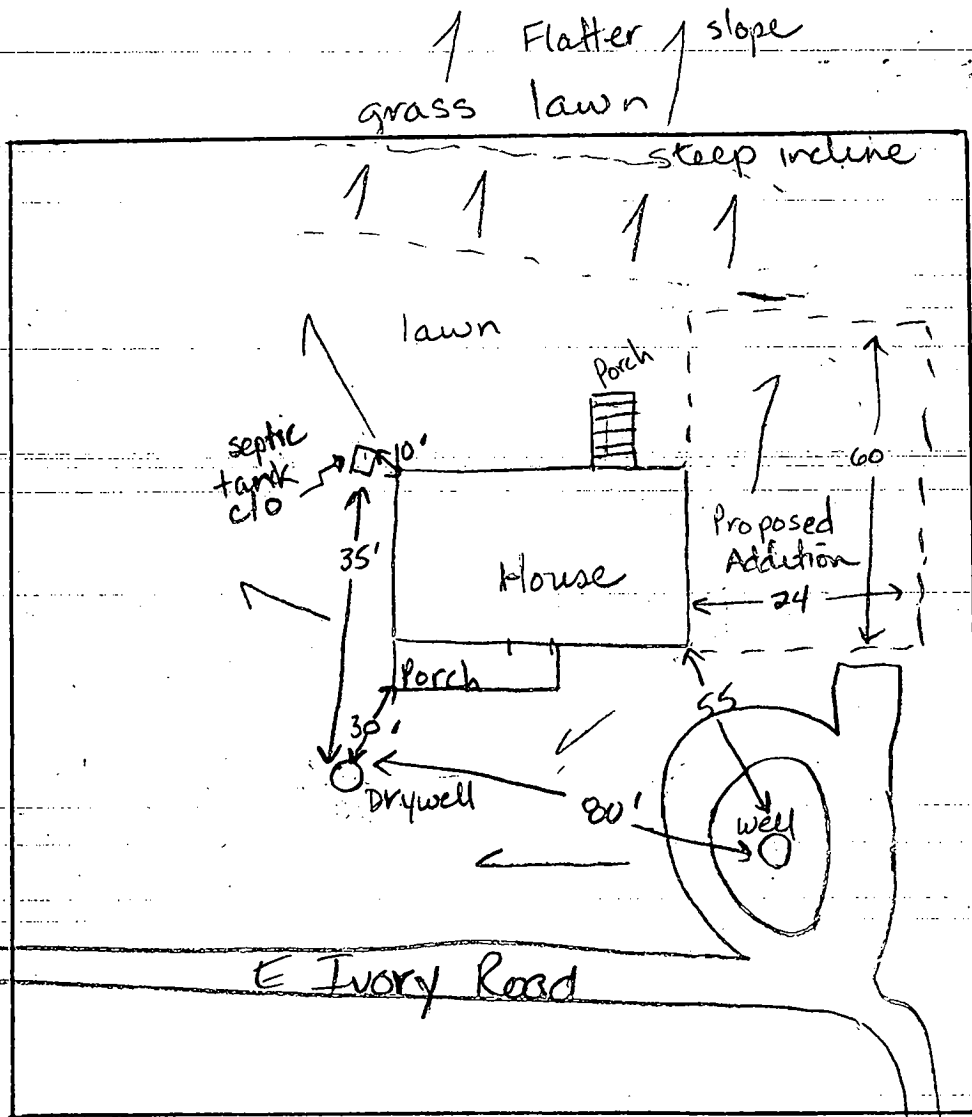 Flatter slope
grass lawn
steep incline
lawn
Porch
septic
tank
c/o
10'
60
35'
Proposed
Addition
House
24
Porch
55
30'
Drywell
80'
well
E Ivory Road